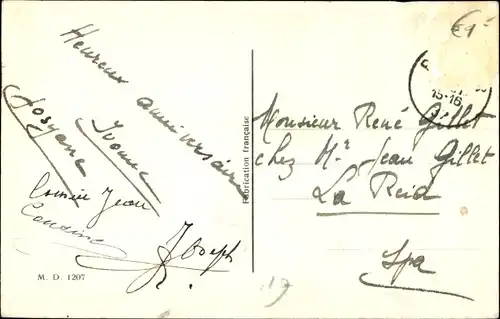 Heureux anniversaire
Josyane
Yvonne
Jean
Cousine
Joseph
M. D. 1207
Fabrication française
€9
15-16
Monsieur René Gillet
chez Mr Jean Gillet
La Reid
Spa